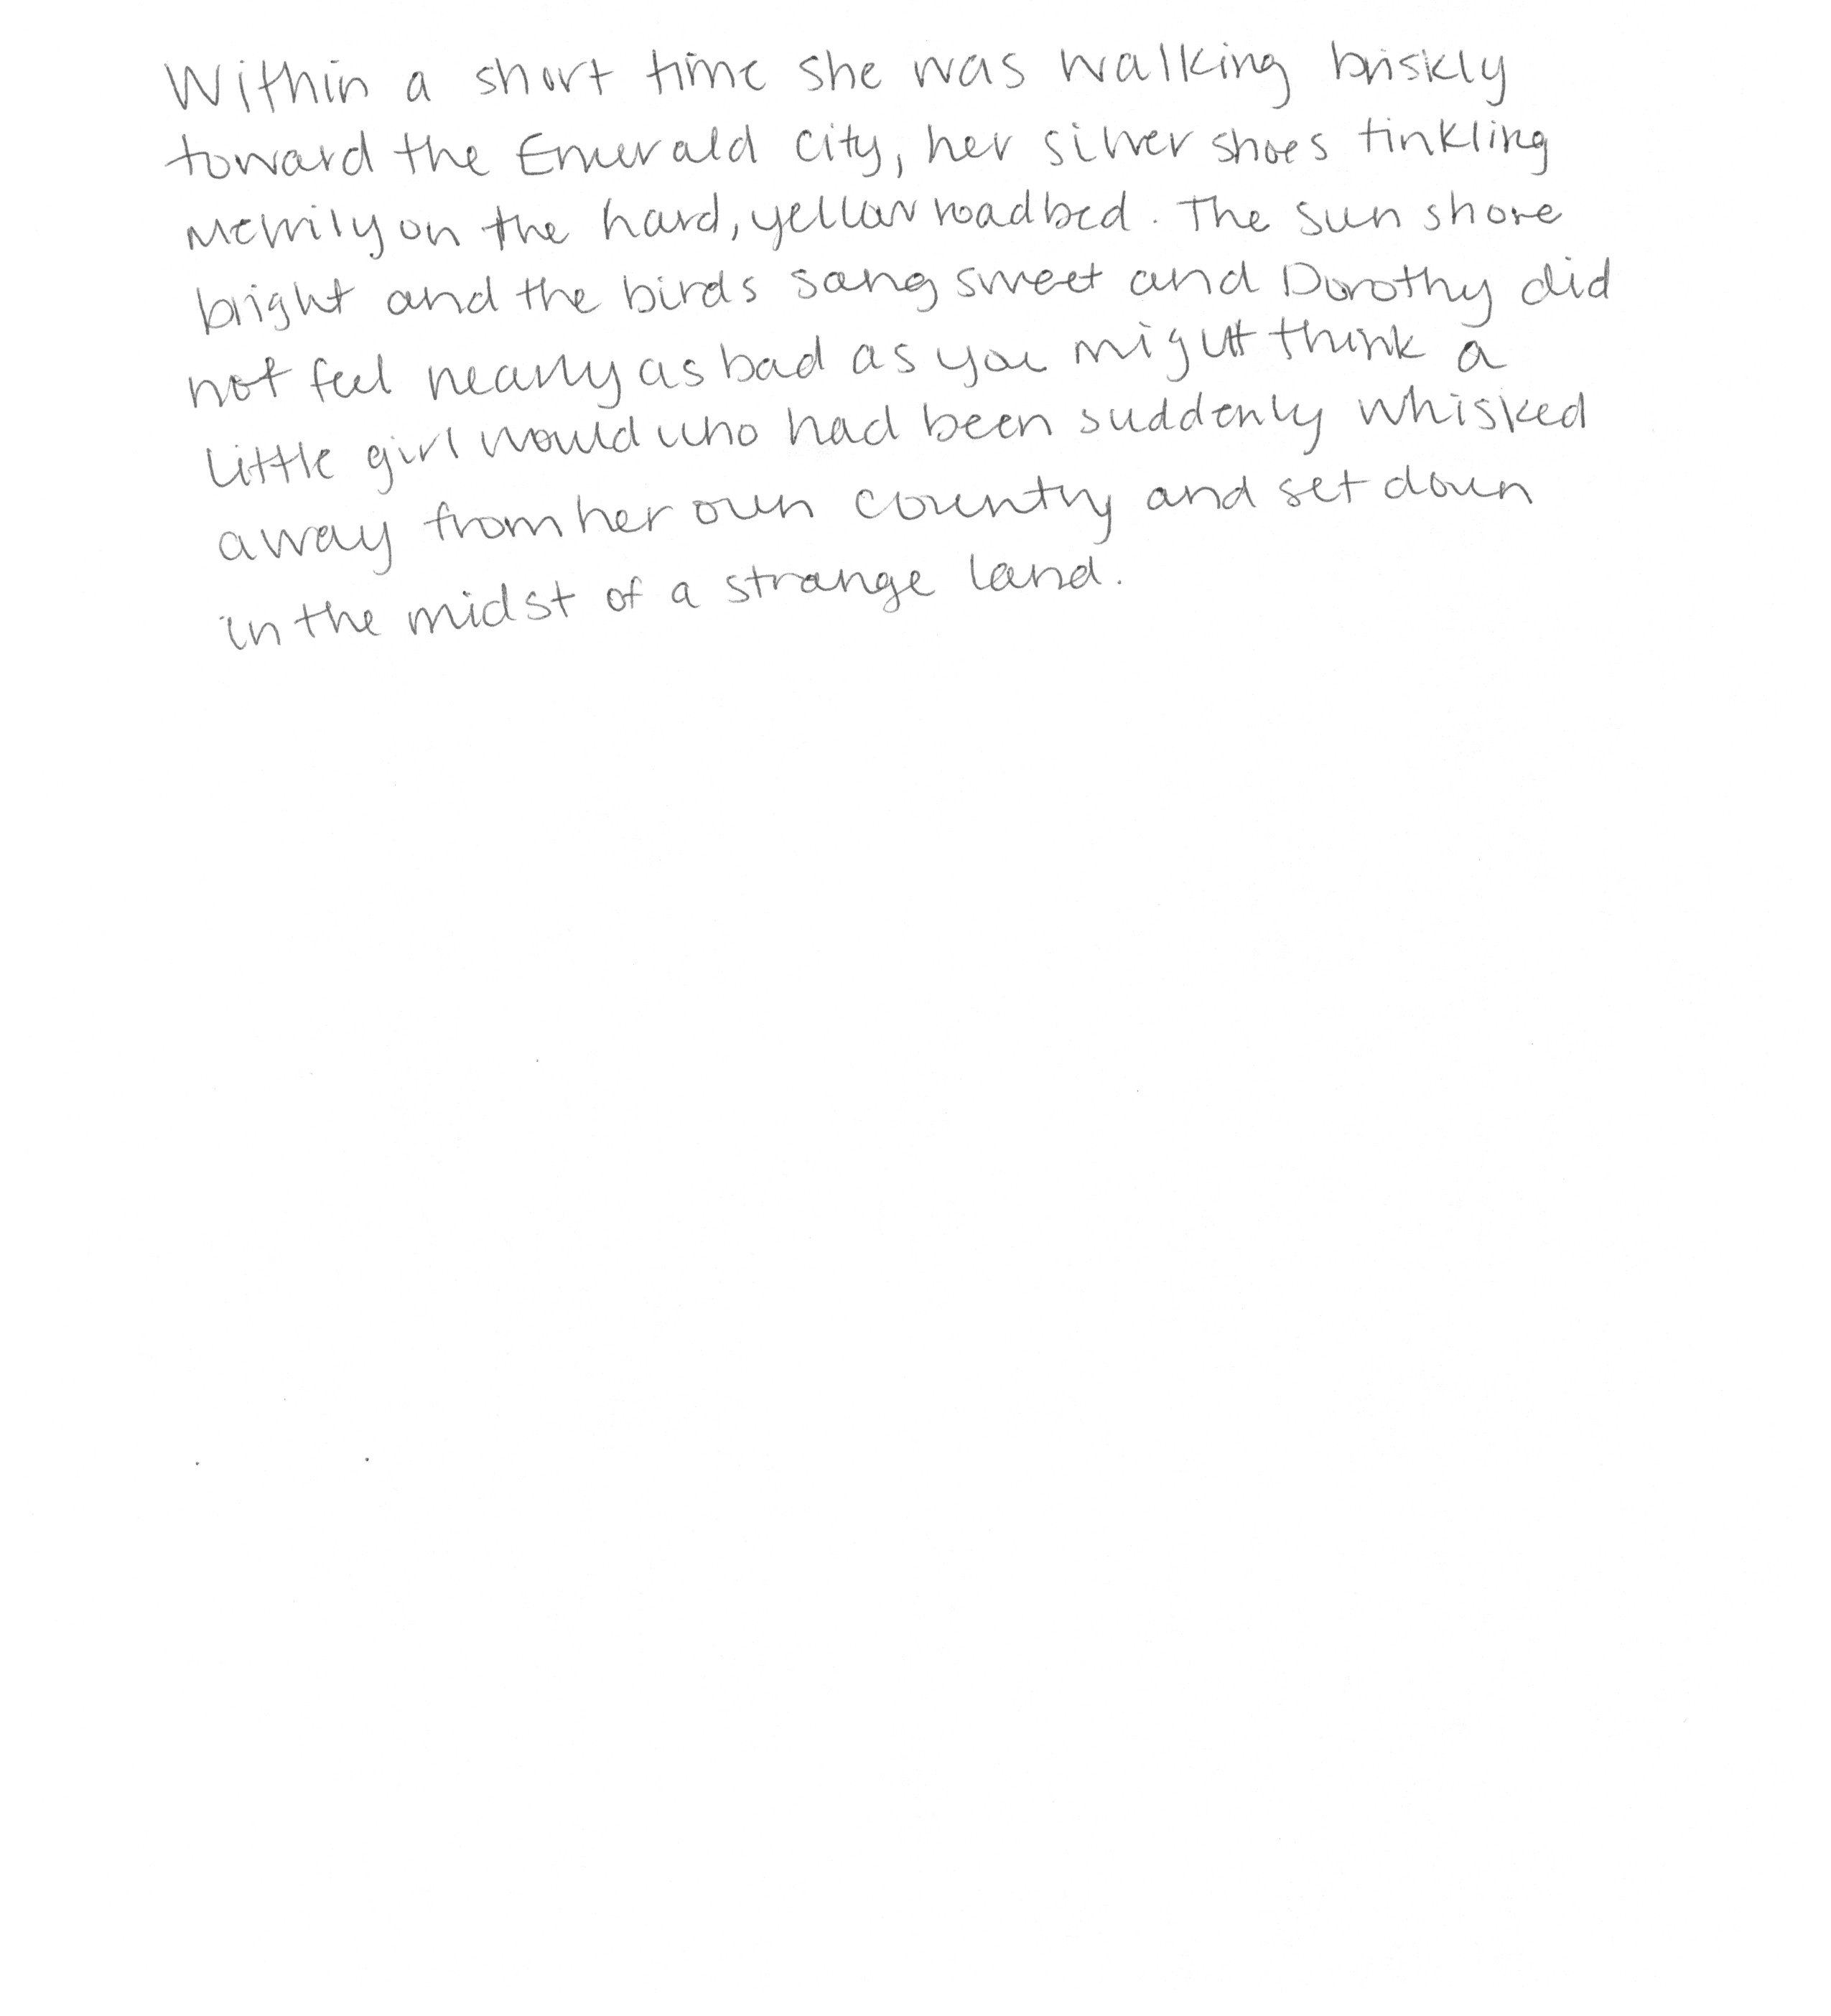 Within a short time she was walking briskly
toward the Emerald City, her silver shoes tinkling
Merrily on the hard, yellow roadbed. The sun shone
bright and the birds sang sweet and Dorothy did
not feel nearly as bad as you might think a
little girl would who had been suddenly whisked
away from her own country and set down
in the midst of a strange land.